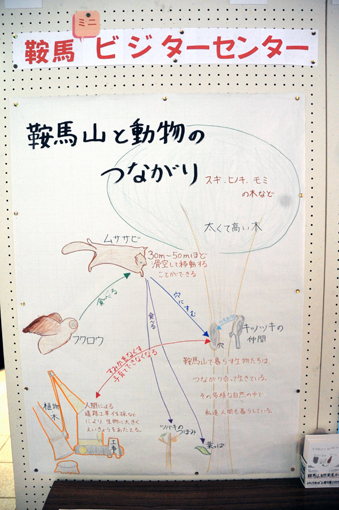 ミニ
鞍馬 ビジターセンター
鞍馬山と動物の
つながり
スギ、ヒノキ、モミ
の木など
太くて高い木
ムササビ
30m～50mほど
滑空して移動する
ことができる
食べる
フクロウ
食べる
穴にすむ
キツツキの
仲間
穴
すみかをなくす
子育てできなくなる
鞍馬山で暮らす生き物たちは
つながり合って生きている。
その多様な自然の中で
私達人間も暮らしている。
植物
木
人間による
道路工事や伐採など
により、生物に大きく
えいきょうをあたえる。
ツバキのつぼみ
葉っぱ